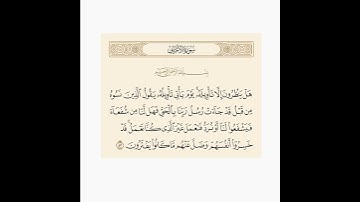 سورة الأعراف
بسم الله الرحمن الرحيم
هَلْ يَنظُرُونَ إِلَّا تَأْوِيلَهُۥ ۚ يَوْمَ يَأْتِى تَأْوِيلُهُۥ يَقُولُ ٱلَّذِينَ نَسُوهُ
مِن قَبْلُ قَدْ جَآءَتْ رُسُلُ رَبِّنَا بِٱلْحَقِّ فَهَل لَّنَا مِن شُفَعَآءَ
فَيَشْفَعُوا۟ لَنَآ أَوْ نُرَدُّ فَنَعْمَلَ غَيْرَ ٱلَّذِى كُنَّا نَعْمَلُ ۚ قَدْ
خَسِرُوٓا۟ أَنفُسَهُمْ وَضَلَّ عَنْهُم مَّا كَانُوا۟ يَفْتَرُونَ ٥٣